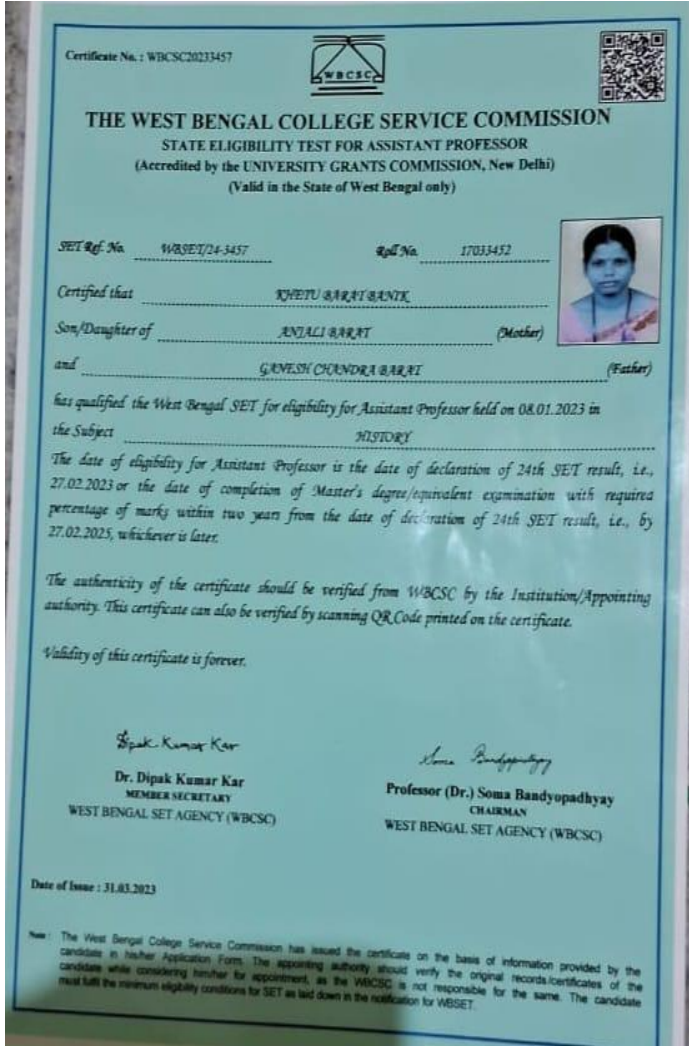 Certificate No. : WBCSC20233457
WBCSC
THE WEST BENGAL COLLEGE SERVICE COMMISSION
STATE ELIGIBILITY TEST FOR ASSISTANT PROFESSOR
(Accredited by the UNIVERSITY GRANTS COMMISSION, New Delhi)
(Valid in the State of West Bengal only)
SET Ref. No. WBSET/24-3457 Roll No. 17033452
Certified that KHETU BARAT BANIK
Son/Daughter of ANJALI BARAT (Mother)
and GANESH CHANDRA BARAT (Father)
has qualified the West Bengal SET for eligibility for Assistant Professor held on 08.01.2023 in
the Subject HISTORY
The date of eligibility for Assistant Professor is the date of declaration of 24th SET result, i.e.,
27.02.2023 or the date of completion of Master's degree/equivalent examination with required
percentage of marks within two years from the date of declaration of 24th SET result, i.e., by
27.02.2025, whichever is later.
The authenticity of the certificate should be verified from WBCSC by the Institution/Appointing
authority. This certificate can also be verified by scanning QR Code printed on the certificate.
Validity of this certificate is forever.
Dipak Kumar Kar
Soma Bandyopadhyay
Dr. Dipak Kumar Kar
MEMBER SECRETARY
WEST BENGAL SET AGENCY (WBCSC)
Professor (Dr.) Soma Bandyopadhyay
CHAIRMAN
WEST BENGAL SET AGENCY (WBCSC)
Date of Issue : 31.03.2023
Note : The West Bengal College Service Commission has issued the certificate on the basis of information provided by the
candidate in his/her Application Form. The appointing authority should verify the original records/certificates of the
candidate while considering him/her for appointment, as the WBCSC is not responsible for the same. The candidate
must fulfil the minimum eligibility conditions for SET as laid down in the notification for WBSET.